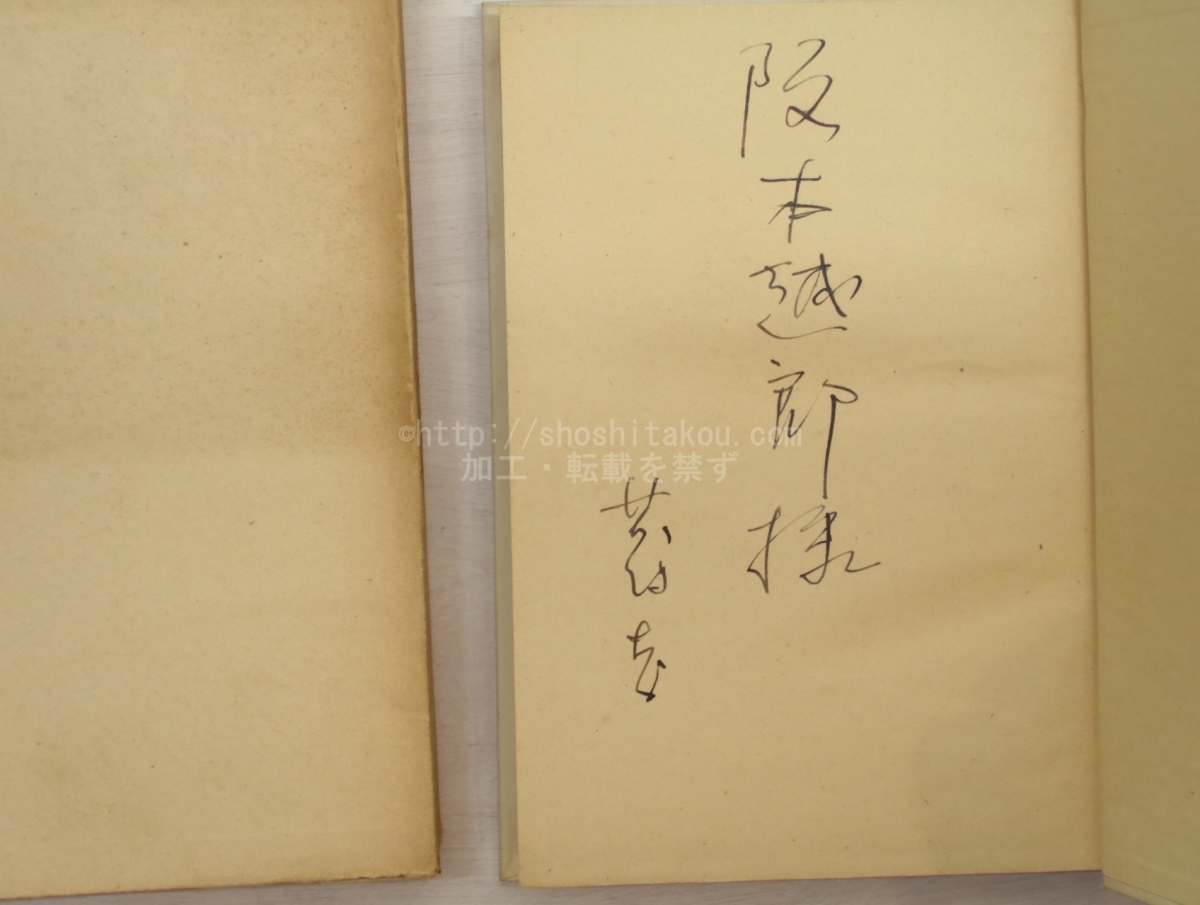 阪本越郎様
©http://shoshitakou.com
加工・転載を禁ず